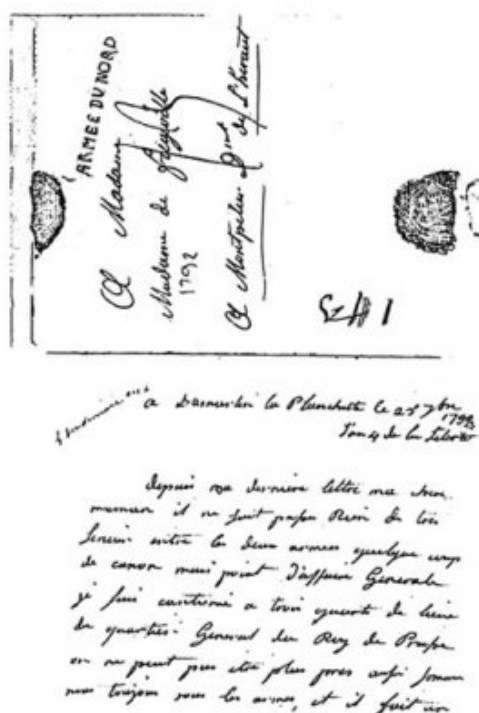 ARMEE DU NORD
A Madame
Madame de
1792
A Montpelier Dent de L'heraut
a Dammartin la Planchette le 25 7bre
1792
L'an 4 de la Liberté
depuis ma derniere lettre ma chere
maman il ne fait passe Rien de tres
serieux entre les deux armees quelque coup
de canon mais point d'affaire Generale
je suis cantonné a trois quarts de lieue
du quartier General du Roy de Prusse
on ne peut pas etre plus pres aussi sommes
nous toujours sous les armes, et il fait un